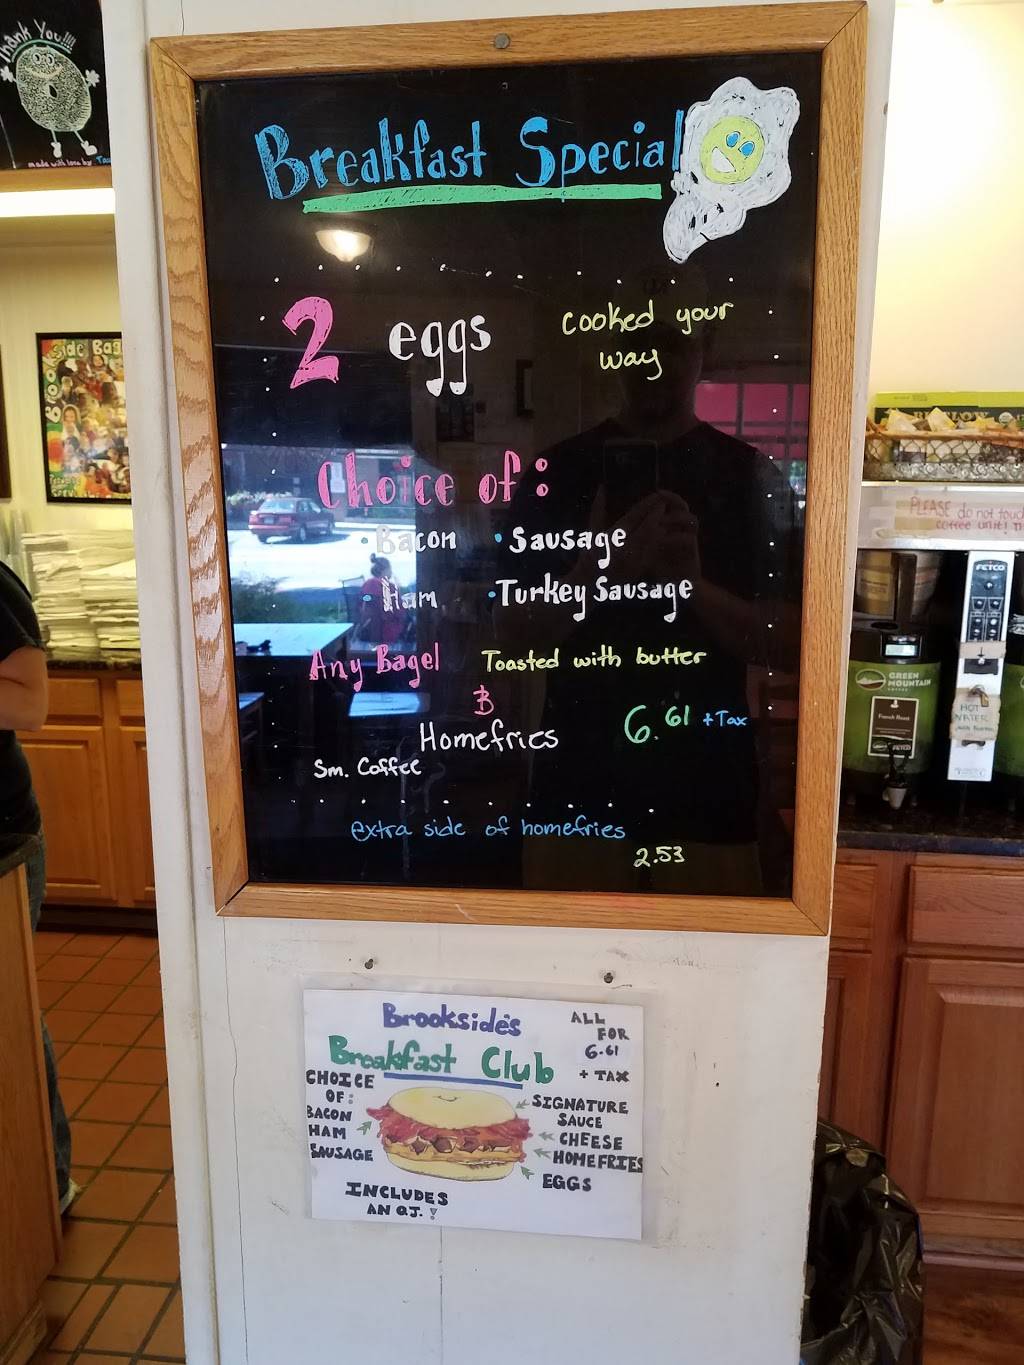 Thank You!!!!
Breakfast Special
2 eggs cooked your
way
Choice of:
• Bacon • Sausage
• Ham • Turkey Sausage
Any Bagel Toasted with butter
&
Homefries 6.61 + Tax
Sm. Coffee
extra side of homefries
2.53
Brookside's
Breakfast Club
ALL
FOR
6.61
+ TAX
CHOICE
OF:
BACON
HAM
SAUSAGE
SIGNATURE
SAUCE
CHEESE
HOMEFRIES
EGGS
INCLUDES
AN OJ.!
PLEASE do not touch
coffee unit!
FETCO
GREEN
MOUNTAIN
COFFEE
French Roast
FETCO
HOT
WATER